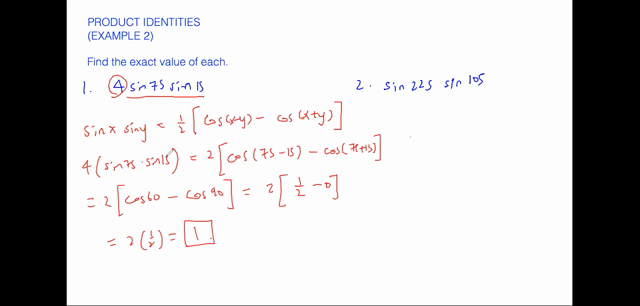 PRODUCT IDENTITIES
(EXAMPLE 2)
Find the exact value of each.
1. 4 sin75 sin15
2. sin 225 sin 105
sinx siny = 1/2 [cos(x-y) - cos(x+y)]
4(sin75 · sin15) = 2[cos(75-15) - cos(75+15)]
= 2[cos60 - cos90] = 2[1/2 - 0]
= 2(1/2) = 1.